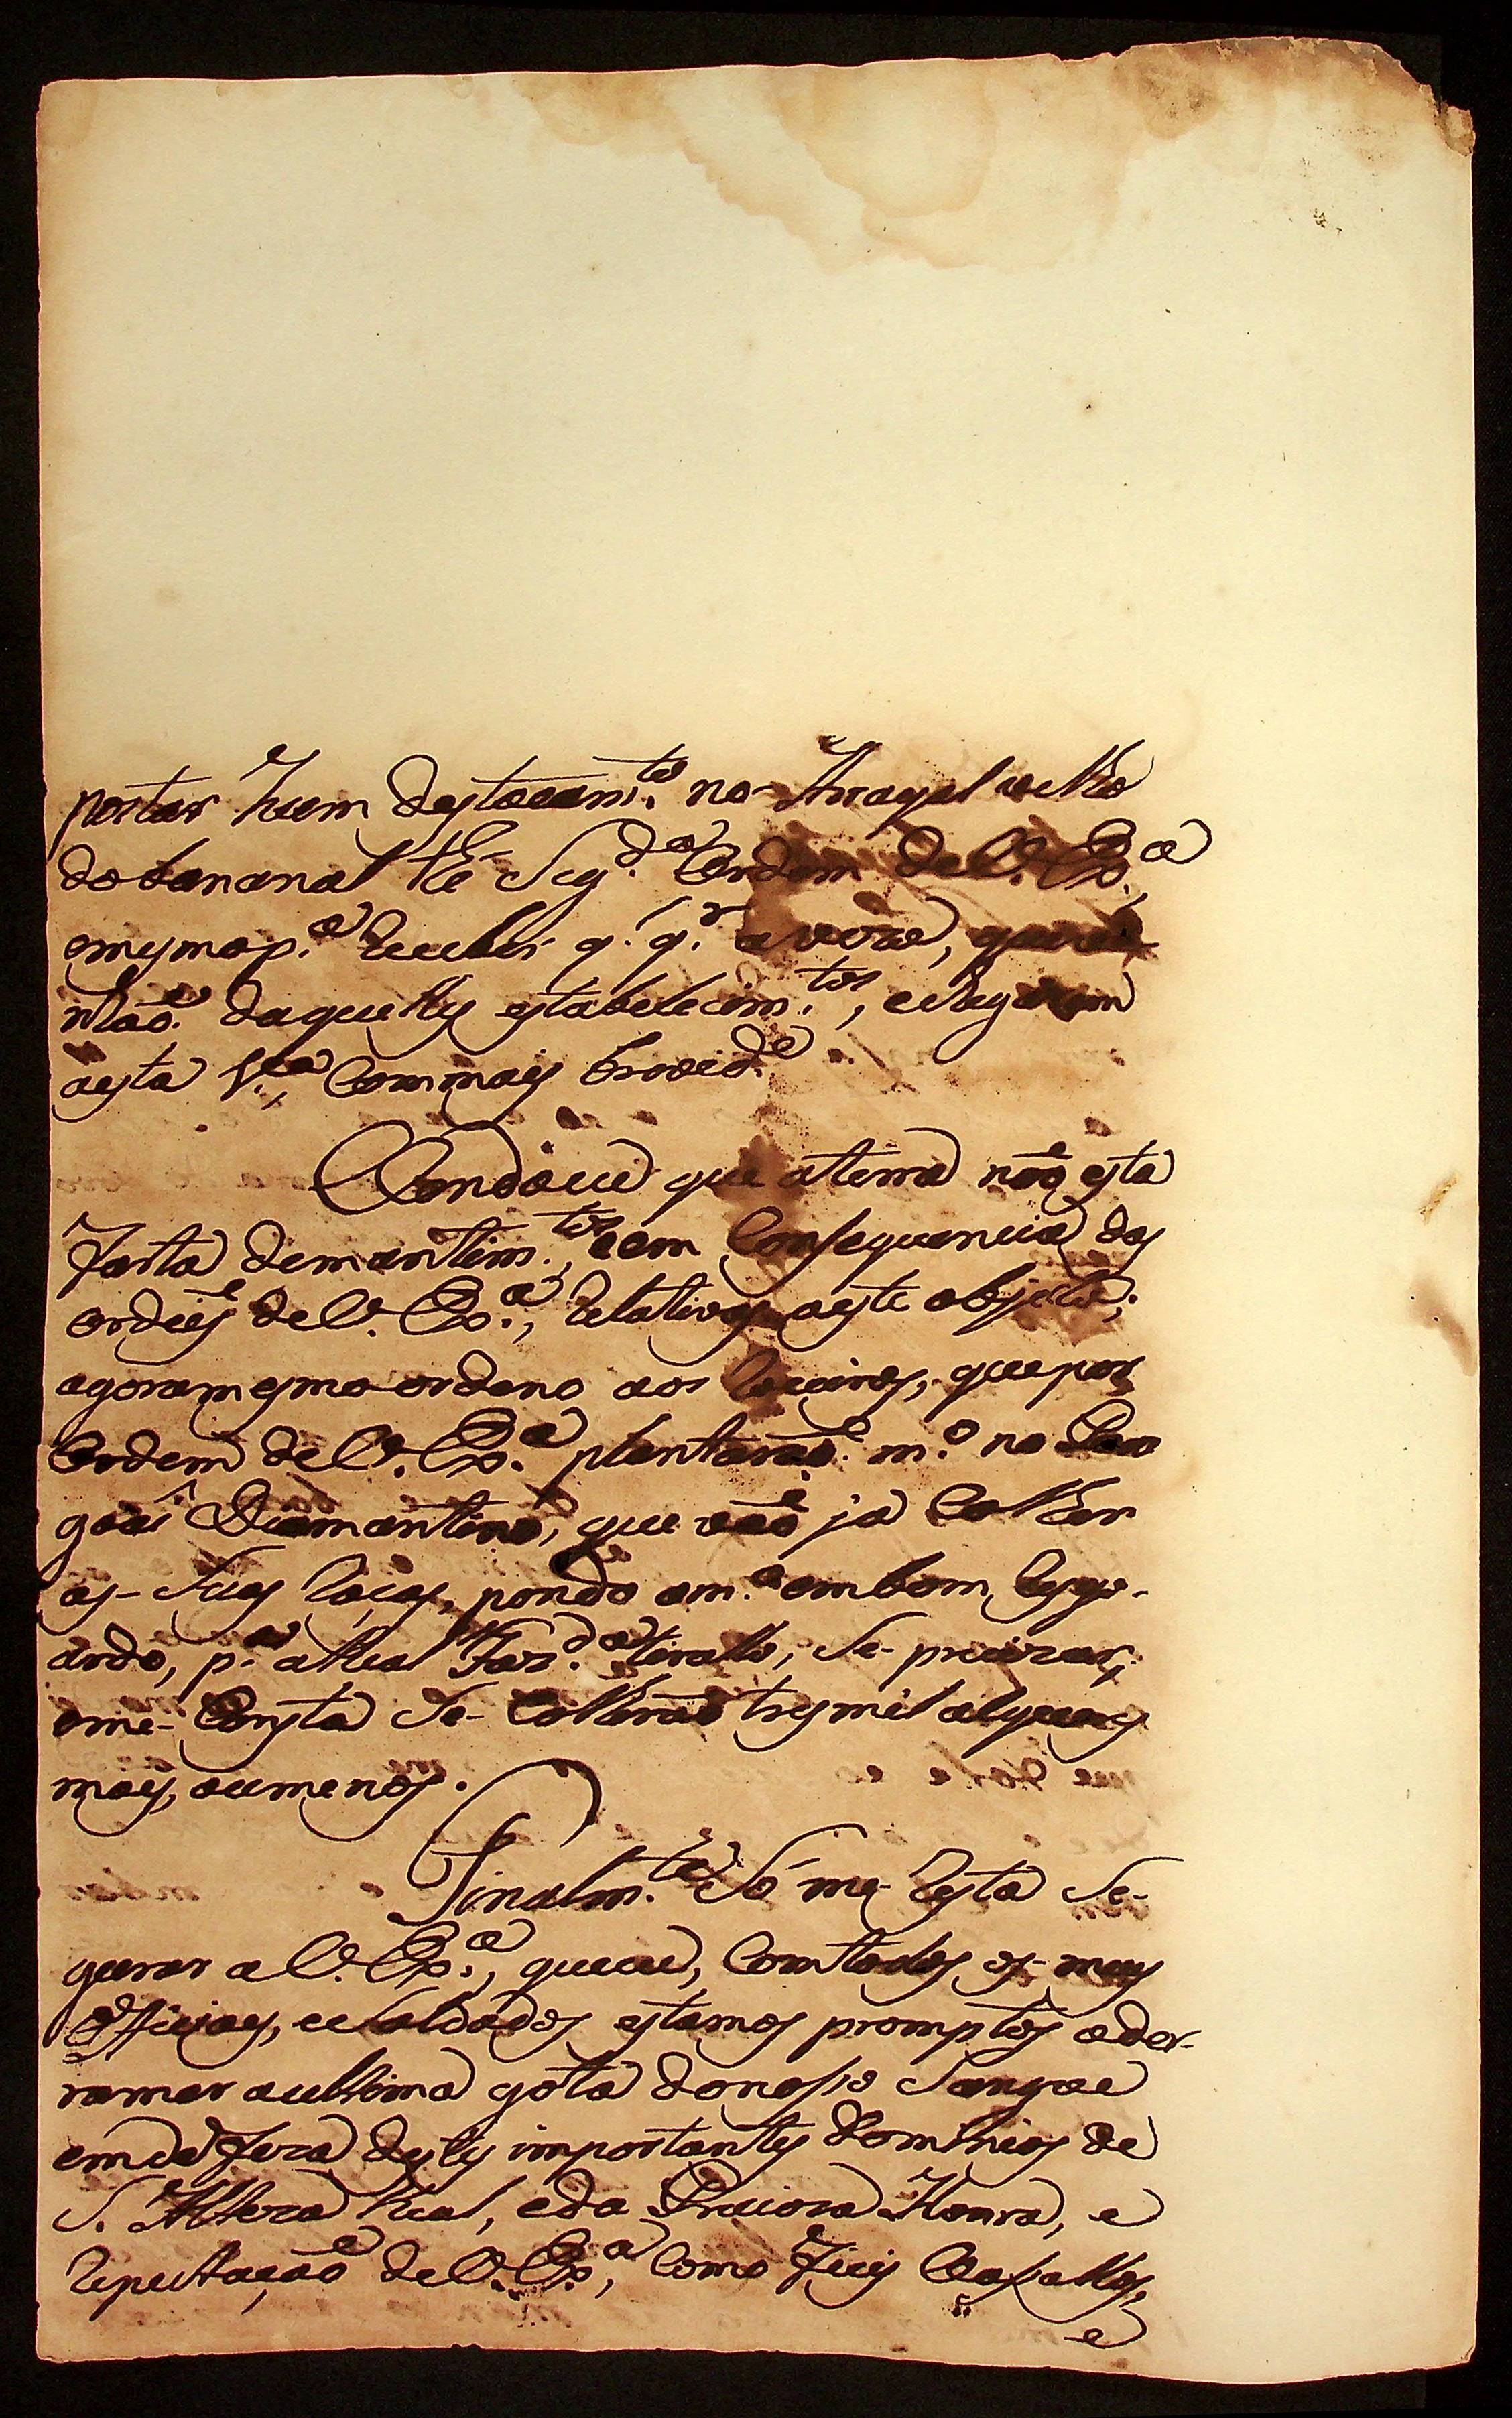 postar hum destacam.to no Arrayal velho
do bananal te Seg.da Ordem de V. Ex.a
emesmo p.a Receber q. q.r avizo,
daquelles estabelecim.tos, e
aesta V.a, Com mais brevid.e
Como vi que aterra não esta
farta demantim.tos, e em Consequencia das
ordeñs de V. Ex.a, Relativas aeste objecto;
agora mesmo ordeno aos que por
Ordem de V. Ex.a plantarão m.o no Pa
goai Diamantino, que vão já Colher
as Suas Roças, pondo om.o em bom Resgo-
ardo, p.a aReal Faz.da tirallo, Se precizar,
eme Consta Se Colherão tres mil alqueres
mais, oumenos.
Finalm.te Só me Resta Se-
gurar a V. Ex.a, que eu, Com todos os meus
Officiaes, eSoldados estamos promptos ader-
ramar aultima gôta donosso Sangue
em defeza destes importantes Dominios de
S. Alteza Real, e da Precioza Honra, e
Reputação de V. Ex.a, Como Fieis Vassallos,
e